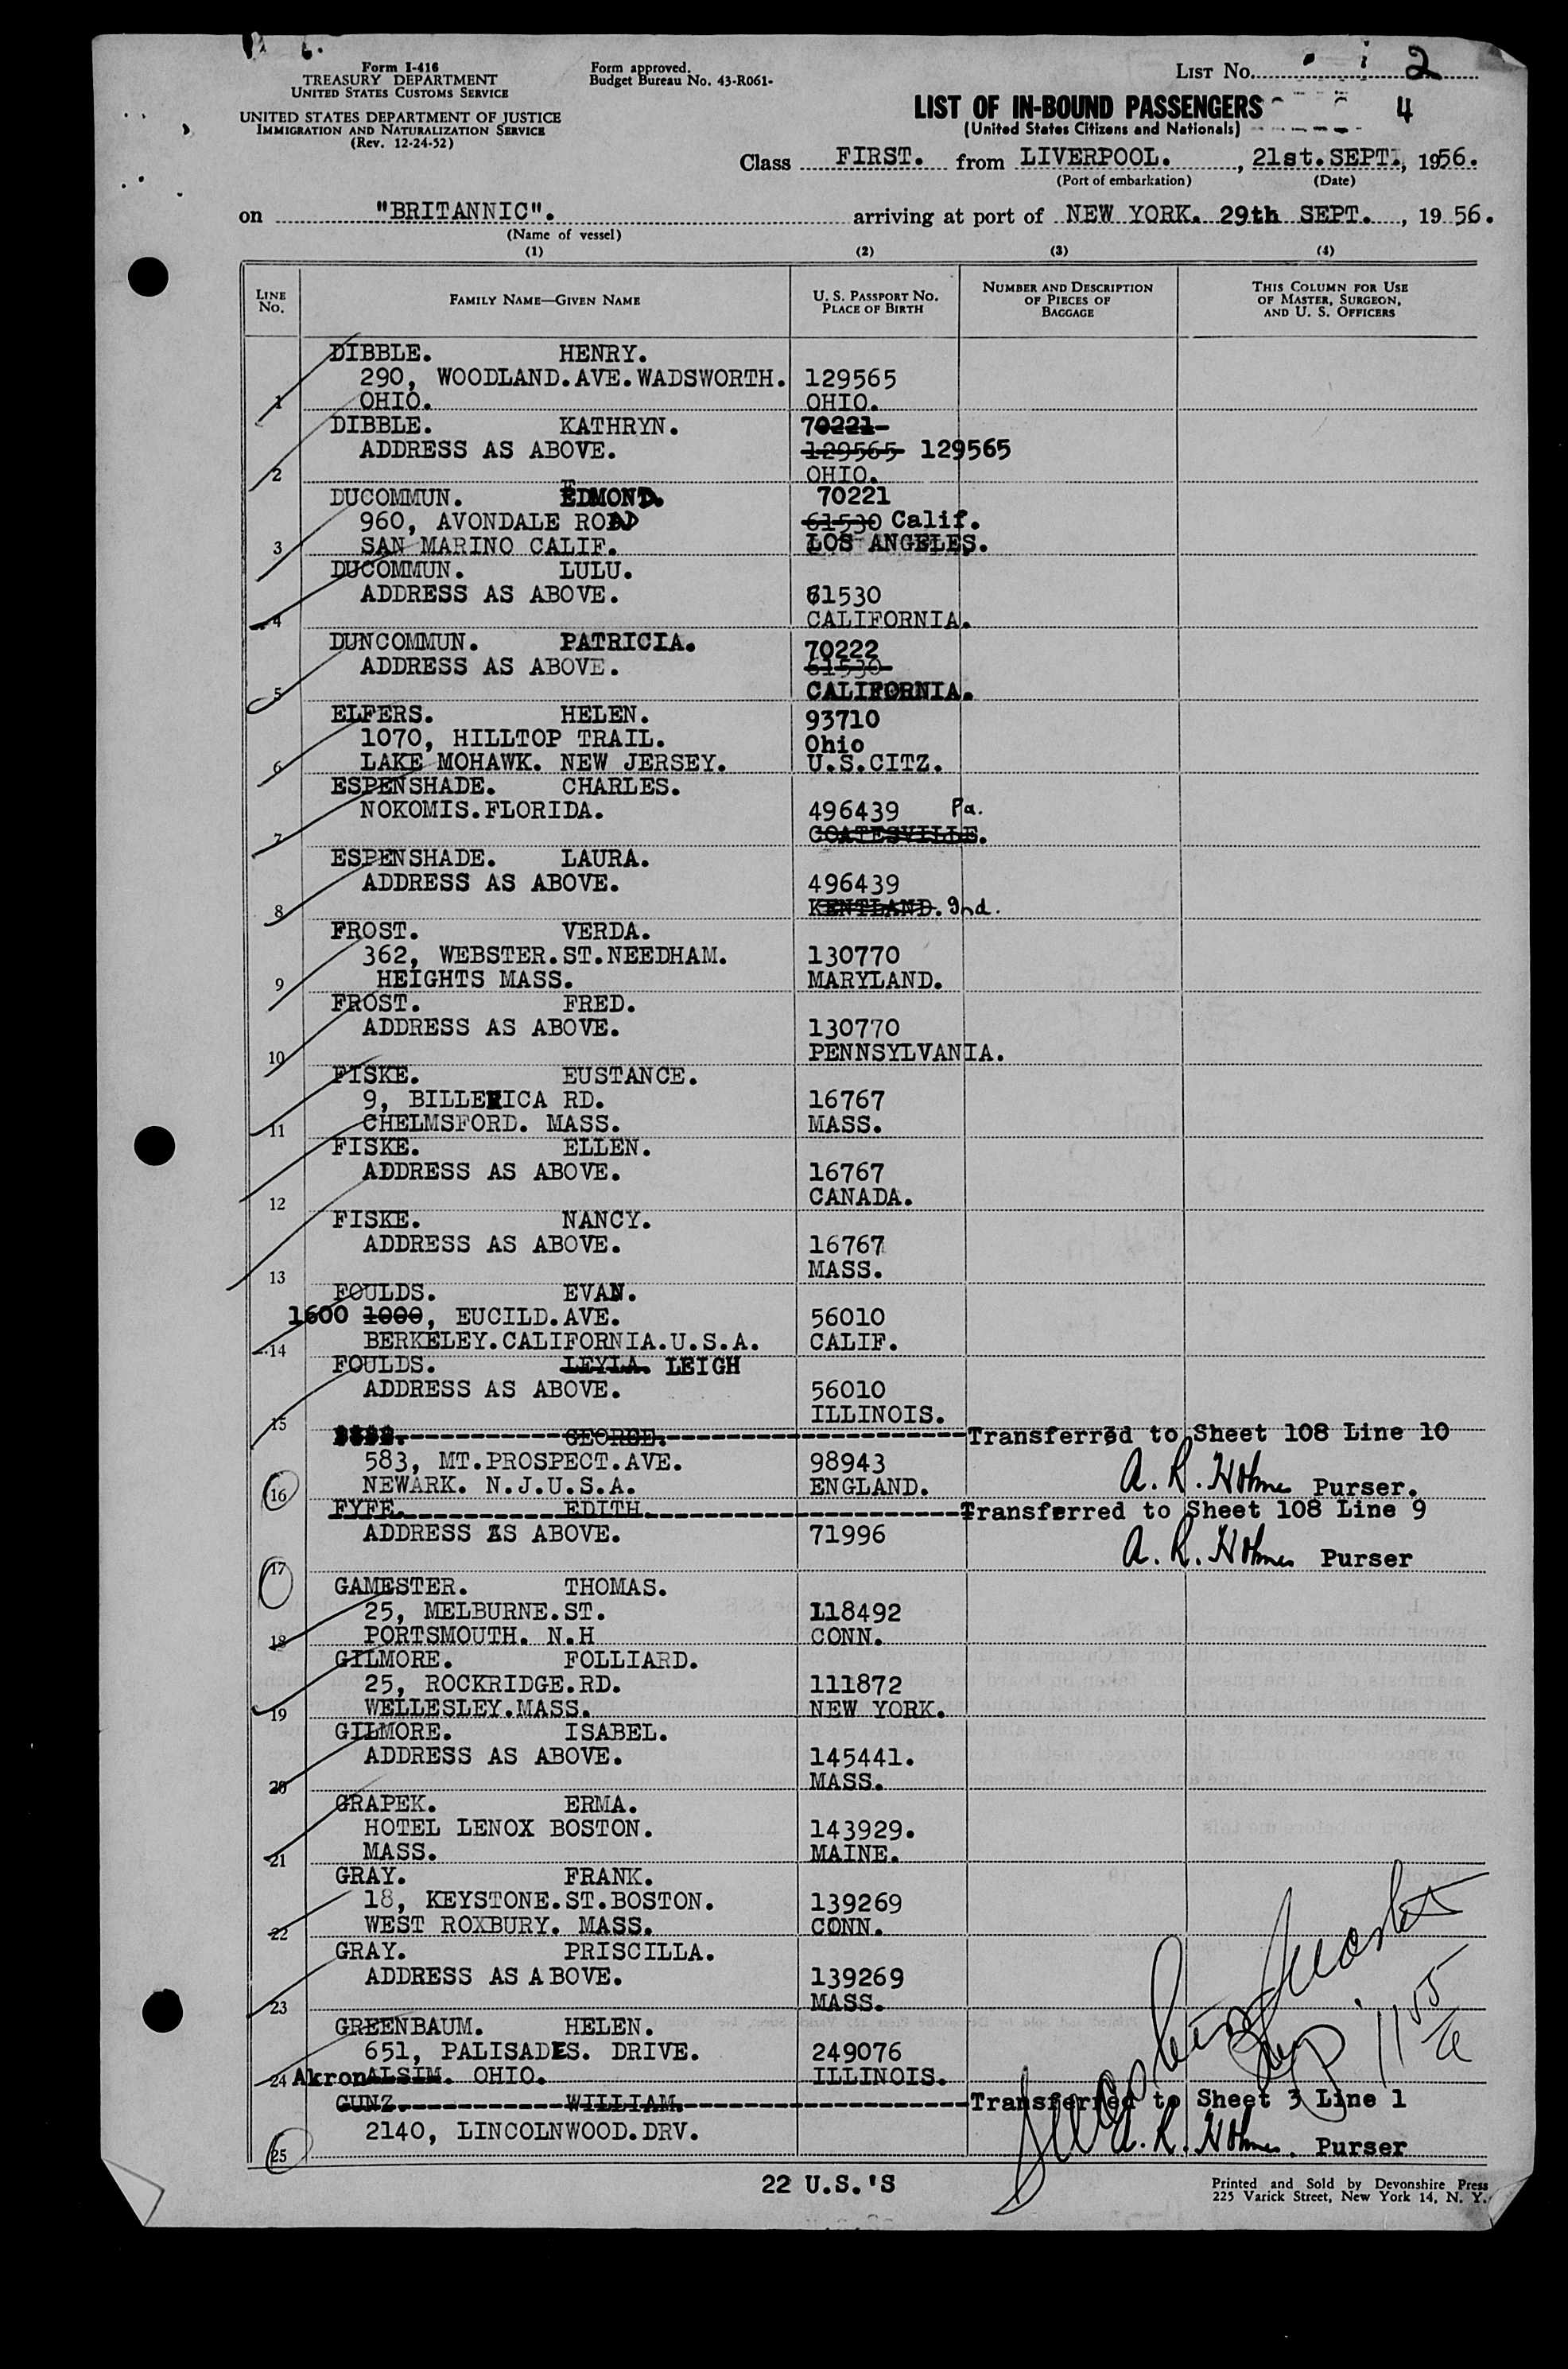 Form I-416
TREASURY DEPARTMENT
UNITED STATES CUSTOMS SERVICE
UNITED STATES DEPARTMENT OF JUSTICE
IMMIGRATION AND NATURALIZATION SERVICE
(Rev. 12-24-52)
Form approved.
Budget Bureau No. 43-R061-
LIST NO. 2
LIST OF IN-BOUND PASSENGERS 4
(United States Citizens and Nationals)
Class FIRST. from LIVERPOOL. , 21st. SEPT. , 1956.
(Port of embarkation) (Date)
on "BRITANNIC". arriving at port of NEW YORK. 29th SEPT. , 1956.
(Name of vessel)
(1) (2) (3) (4)
LINE NO. FAMILY NAME—GIVEN NAME U. S. PASSPORT NO. PLACE OF BIRTH NUMBER AND DESCRIPTION OF PIECES OF BAGGAGE THIS COLUMN FOR USE OF MASTER, SURGEON, AND U. S. OFFICERS
DIBBLE. HENRY.
290, WOODLAND.AVE.WADSWORTH. 129565
1 OHIO. OHIO.
DIBBLE. KATHRYN. 70221
ADDRESS AS ABOVE. 129565 129565
2 OHIO.
DUCOMMUN. EDMOND. 70221
960, AVONDALE ROAD 61530 Calif.
3 SAN MARINO CALIF. LOS ANGELES.
DUCOMMUN. LULU.
ADDRESS AS ABOVE. 61530
4 CALIFORNIA.
DUNCOMMUN. PATRICIA. 70222
ADDRESS AS ABOVE. 61530
5 CALIFORNIA.
ELFERS. HELEN. 93710
1070, HILLTOP TRAIL. Ohio
6 LAKE MOHAWK. NEW JERSEY. U.S.CITZ.
ESPENSHADE. CHARLES.
NOKOMIS.FLORIDA. 496439 Pa.
7 COATESVILLE.
ESPENSHADE. LAURA.
ADDRESS AS ABOVE. 496439
8 KENTLAND. Ind.
FROST. VERDA.
362, WEBSTER.ST.NEEDHAM. 130770
9 HEIGHTS MASS. MARYLAND.
FROST. FRED.
ADDRESS AS ABOVE. 130770
10 PENNSYLVANIA.
FISKE. EUSTANCE.
9, BILLERICA RD. 16767
11 CHELMSFORD. MASS. MASS.
FISKE. ELLEN.
ADDRESS AS ABOVE. 16767
12 CANADA.
FISKE. NANCY.
ADDRESS AS ABOVE. 16767
13 MASS.
FOULDS. EVAN.
1600 1000, EUCILD.AVE. 56010
14 BERKELEY.CALIFORNIA.U.S.A. CALIF.
FOULDS. LEYLA. LEIGH
ADDRESS AS ABOVE. 56010
15 ILLINOIS.
GEORGE. Transferred to Sheet 108 Line 10
583, MT.PROSPECT.AVE. 98943
16 NEWARK. N.J.U.S.A. ENGLAND. A. R. Holmes Purser.
FYFE. EDITH. Transferred to Sheet 108 Line 9
ADDRESS AS ABOVE. 71996
17 A. R. Holmes Purser
GAMESTER. THOMAS.
25, MELBURNE.ST. 118492
18 PORTSMOUTH. N.H CONN.
GILMORE. FOLLIARD.
25, ROCKRIDGE.RD. 111872
19 WELLESLEY.MASS. NEW YORK.
GILMORE. ISABEL.
ADDRESS AS ABOVE. 145441.
20 MASS.
GRAPEK. ERMA.
HOTEL LENOX BOSTON. 143929.
21 MASS. MAINE.
GRAY. FRANK.
18, KEYSTONE.ST.BOSTON. 139269
22 WEST ROXBURY. MASS. CONN.
GRAY. PRISCILLA.
ADDRESS AS ABOVE. 139269
23 MASS.
GREENBAUM. HELEN.
651, PALISADES. DRIVE. 249076
24 Akron ALSIM. OHIO. ILLINOIS.
GUNZ. WILLIAM. Transferred to Sheet 3 Line 1
2140, LINCOLNWOOD.DRV.
25 A. R. Holmes. Purser
22 U.S.'S
Printed and Sold by Devonshire Press
225 Varick Street, New York 14, N. Y.